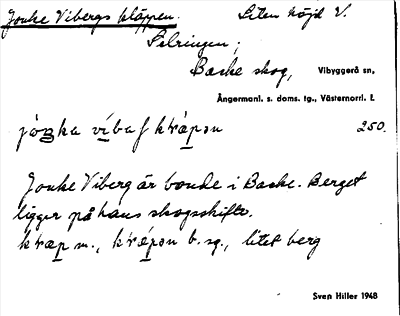 Jonke Vibergs kläppen. Liten höjd V.
Selringen;
Baske skog, Vibyggerå sn,
Ångermanl. s. doms. tg., Västernorrl. l.
250.
Jonke Viberg är bonde i Baske. Berget
ligger på hans skogsskifte.
b. sg., litet berg
Sven Hiller 1948